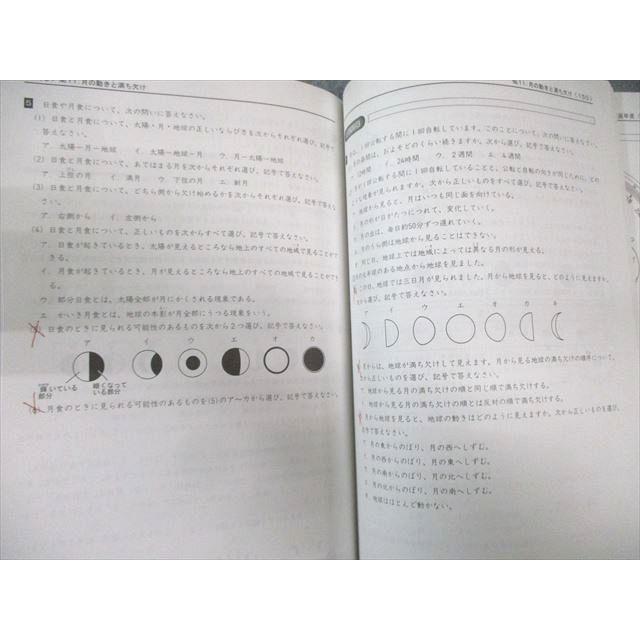 11:月の動きと満ち欠け
5 日食や月食について、次の問いに答えなさい。
(1) 日食と月食について、太陽・月・地球の正しいならびを次からそれぞれ選び、記号で答えなさい。
ア. 太陽ー月ー地球 イ. 太陽ー地球ー月 ウ. 月ー太陽ー地球
(2) 日食と月食について、あてはまる月を次からそれぞれ選び、記号で答えなさい。
ア 上弦の月 イ 満月 ウ 下弦の月 エ 新月
(3) 日食と月食について、どちら側から欠け始めるかを次からそれぞれ選び、記号で答えなさい。
ア 右側から イ 左側から
(4) 日食と月食について、正しいものを次からすべて選び、記号で答えなさい。
ア 日食が起きているとき、太陽が見えるところなら地上のすべての地域で見ることができる。
イ 月食が起きているとき、月が見えるところなら地上のすべての地域で見ることができる。
ウ 部分日食とは、太陽全部が月にかくされる現象である。
エ かいき月食とは、地球の本影が月全部にうつる現象をいう。
日食のときに見られる可能性のあるものを次から2つ選び、記号で答えなさい。
ア イ ウ エ オ カ
輝いている部分
暗くなっている部分
月食のときに見られる可能性のあるものを(5)のア〜カから選び、記号で答えなさい。
11:月の動きと満ち欠け
1回公転する間に1回自転しています。このことについて、次の問いに答えなさい。
およそどのくらい続きますか。次から選び、記号で答えなさい。
12時間 イ. 24時間 ウ. 2週間 エ. 4週間
1回公転する間に1回自転していることと、公転と自転の向きが同じために、どのような現象が見られますか。次から正しいものをすべて選び、記号で答えなさい。
地球から見ると、月はいつも同じ面を向けている。
月の形が日がたつにつれて、変化していく。
毎日約50分ずつ遅れていく。
月のうら側は地球から見ることはできない。
同じ日、地球上では地域によっては異なる月の形が見える。
ある地点から地球を見ました。
この日、地球では三日月が見られました。月から地球を見ると、どのように見えますか。
次から選び、記号で答えなさい。
ア イ ウ エ オ カ キ
月からは、地球が満ち欠けして見えます。月から見る地球の満ち欠けの順序について、
次から正しいものを選び、記号で答えなさい。
地球から見る月の満ち欠けの順と同じ順で満ち欠けする。
地球から見る月の満ち欠けの順とは反対の順で満ち欠けする。
月から地球を見ると、地球の動きはどのように見えますか。次から正しいものを選び、
記号で答えなさい。
ア. 月の東からのぼり、月の西へしずむ。
イ. 月の西からのぼり、月の東へしずむ。
ウ. 月の南からのぼり、月の北へしずむ。
エ. 月の北からのぼり、月の南へしずむ。
オ. 地球はほとんど動かない。